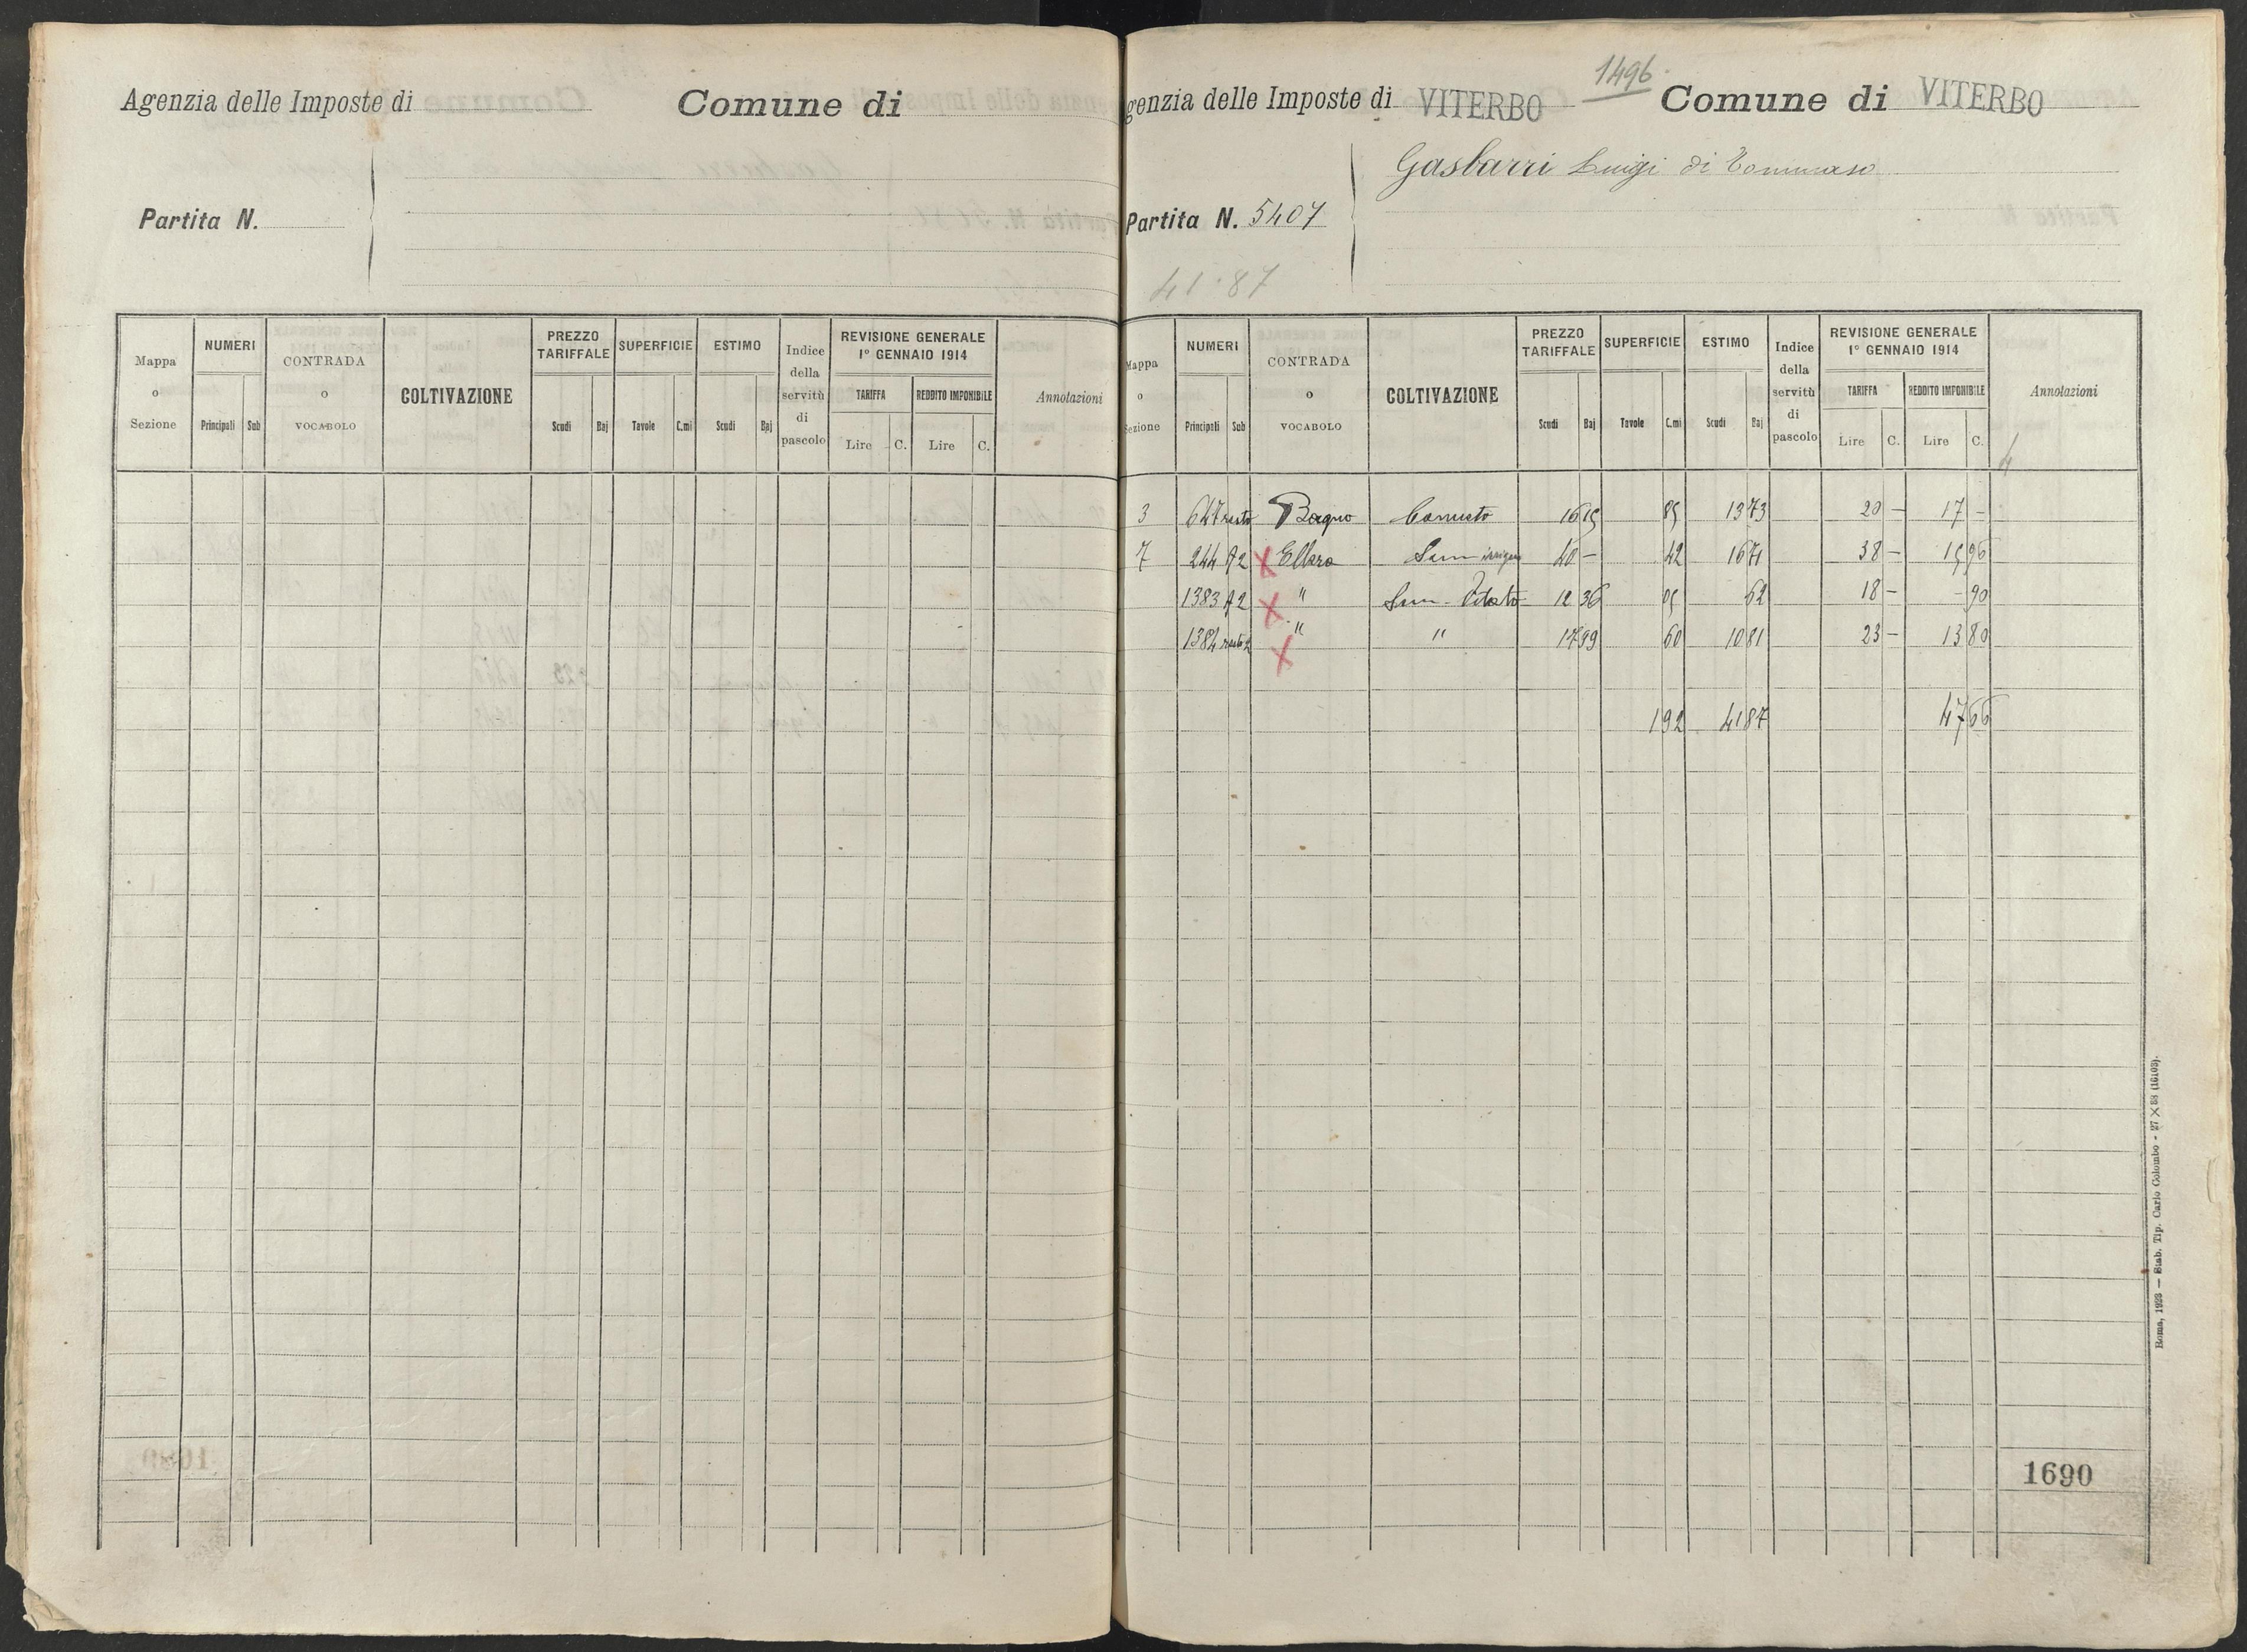 Agenzia delle Imposte di Comune di
Partita N.
Mappa o Sezione NUMERI Principali Sub CONTRADA o VOCABOLO COLTIVAZIONE PREZZO TARIFFALE Scudi Baj SUPERFICIE Tavole C.mi ESTIMO Scudi Baj Indice della servitù di pascolo REVISIONE GENERALE 1° GENNAIO 1914 TARIFFA Lire C. REDDITO IMPONIBILE Lire C. Annotazioni
1496
genzia delle Imposte di VITERBO Comune di VITERBO
Gasbarri Luigi di Tommaso
Partita N. 5407
41.87
Mappa o Sezione NUMERI Principali Sub CONTRADA o VOCABOLO COLTIVAZIONE PREZZO TARIFFALE Scudi Baj SUPERFICIE Tavole C.mi ESTIMO Scudi Baj Indice della servitù di pascolo REVISIONE GENERALE 1° GENNAIO 1914 TARIFFA Lire C. REDDITO IMPONIBILE Lire C. Annotazioni
3 647 resto Bagno 16 15 85 13 73 20 - 17 -
7 244 A 2 X Ellera Sem irriguo 40 - 42 16 71 38 - 15 96
1383 A 2 X " Sem. Vitato 12 36 05 62 18 - - 90
1384 resto 2 X " " 17 99 60 10 81 23 - 13 80
1 92 41 87 47 66
1690
Roma, 1923 — Stab. Tip. Carlo Colombo - 27 X 38 (16103).